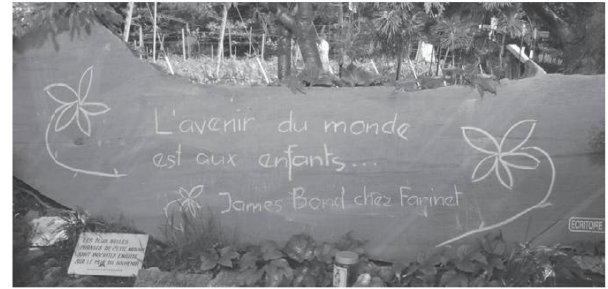 L'avenir du monde
est aux enfants...
James Bond chez Farinet
ECRITOIRE
LES PLUS BELLES
PHRASES DE CETTE
SONT INSCRITES ENSUITE
SUR LE MUR DU